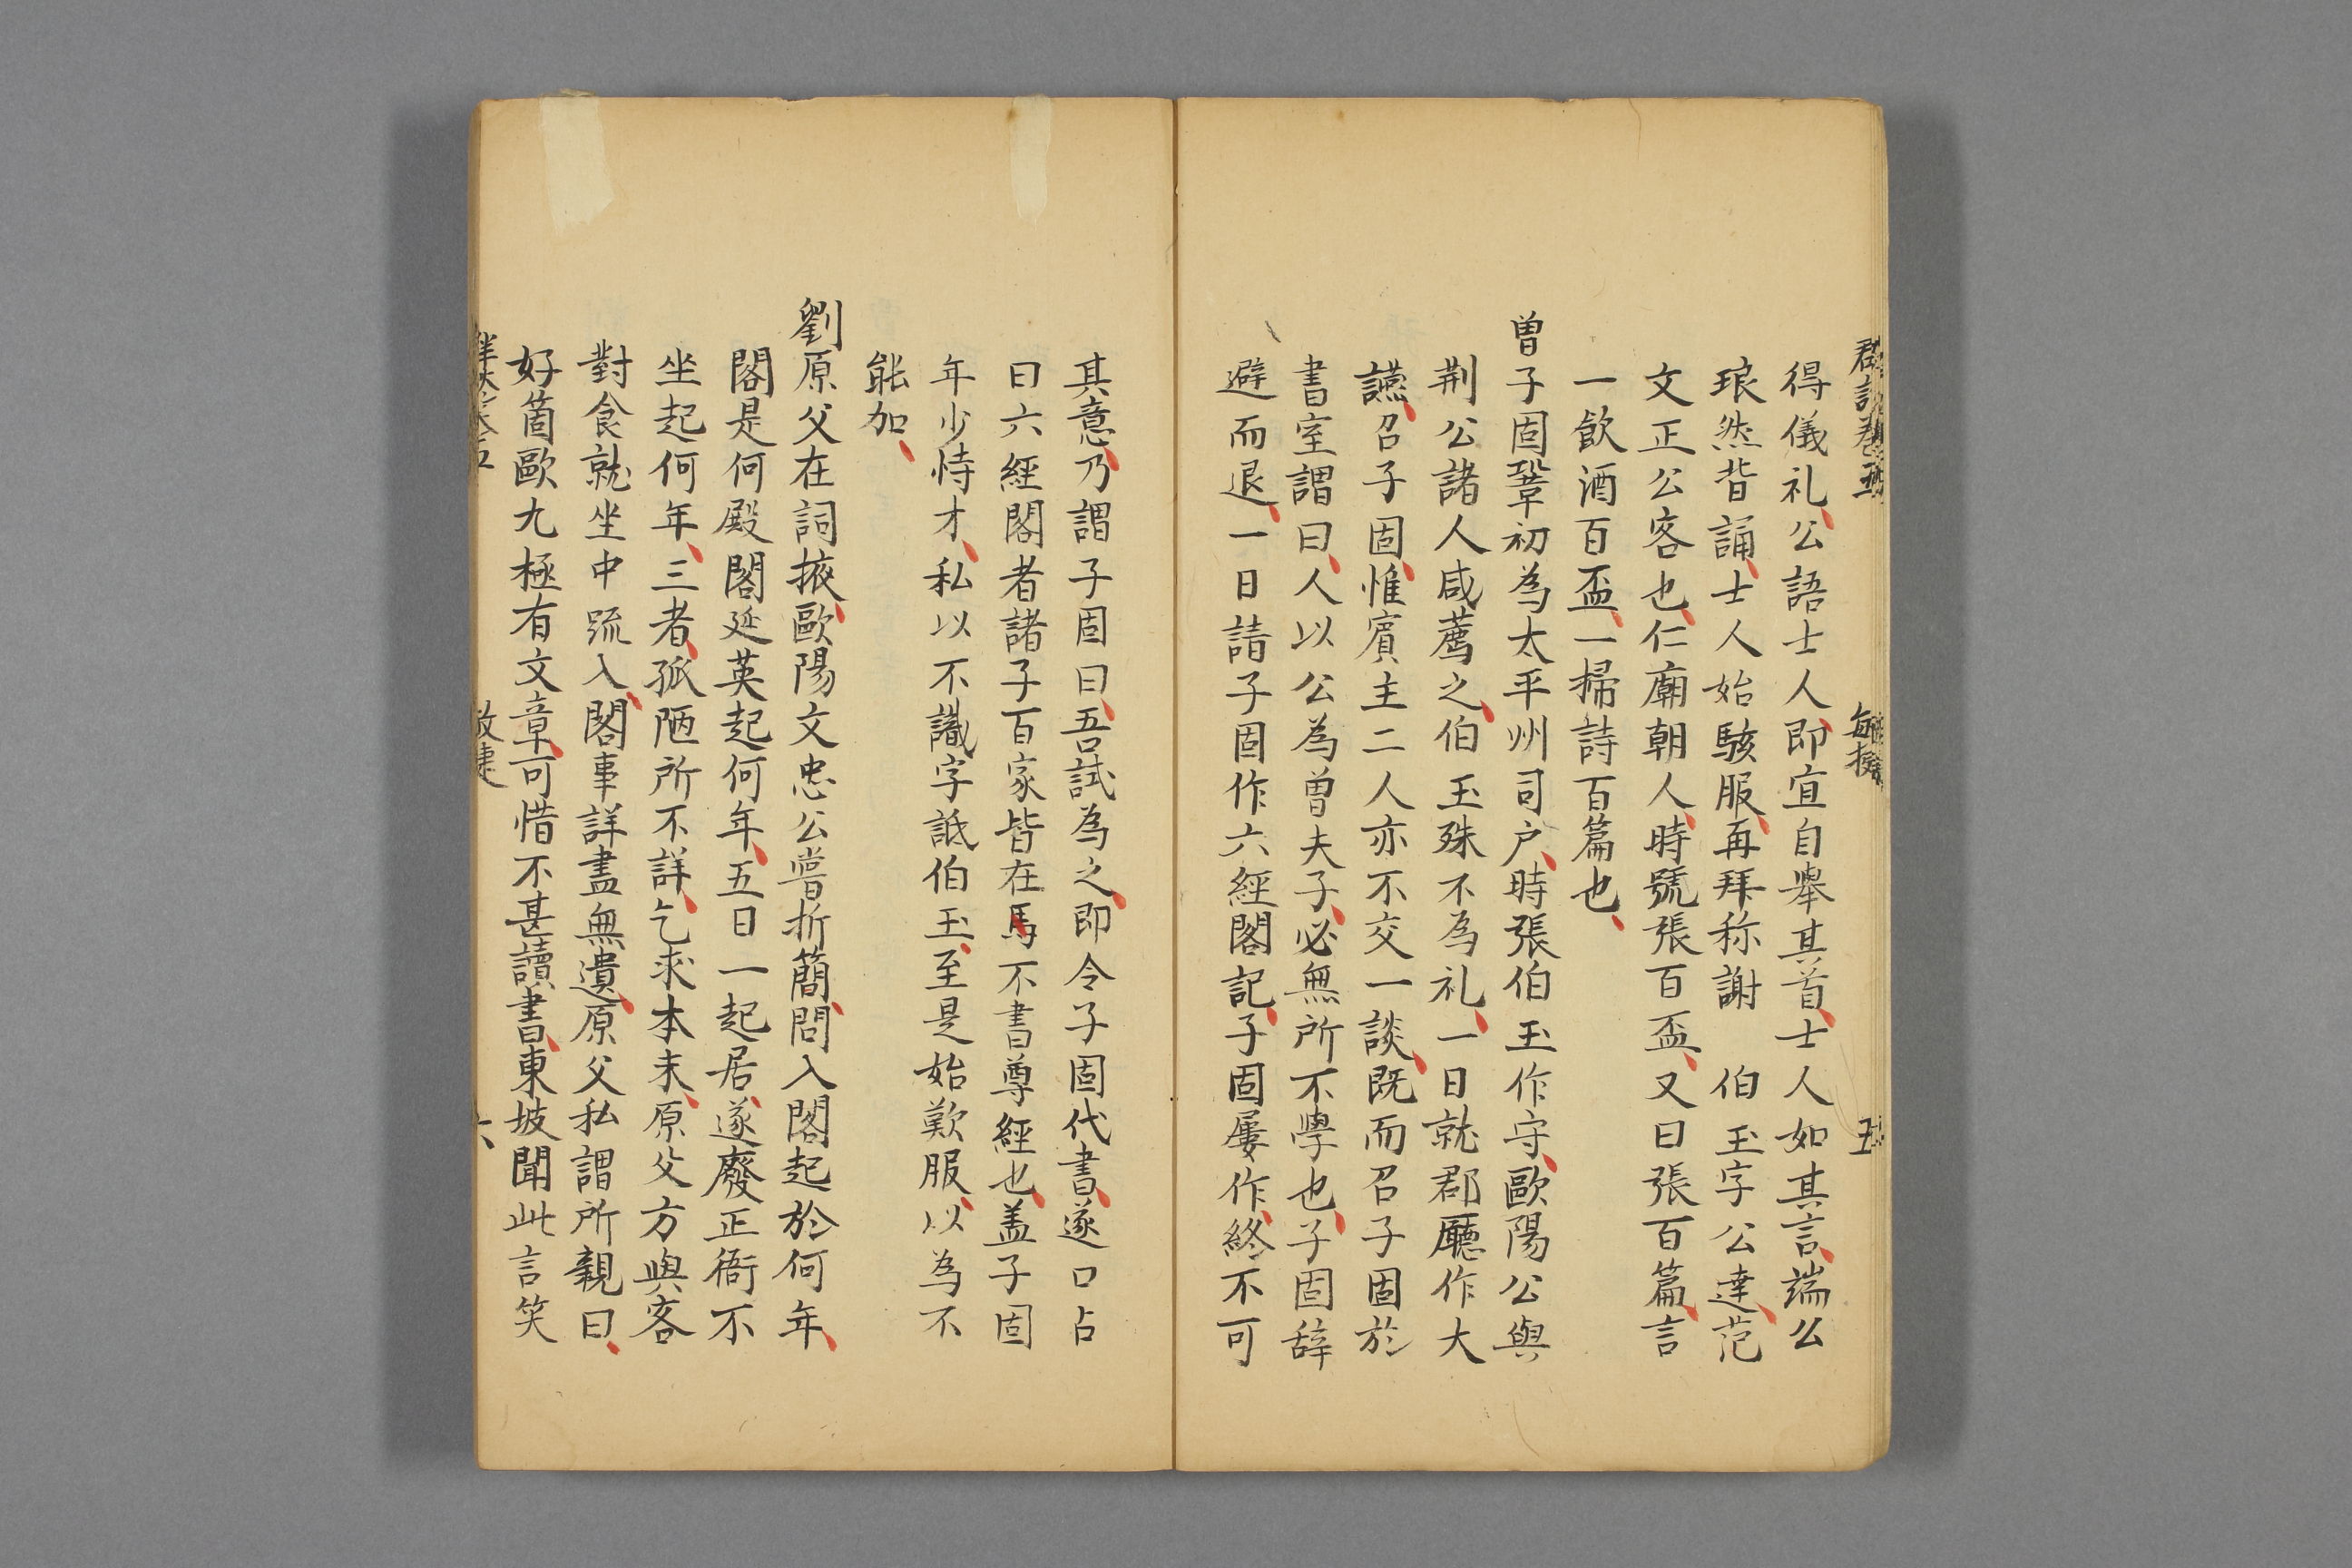 得儀礼公語士人即宜自舉其首士人如其言端公
琅然背誦士人始駭服再拜称謝　伯玉字公達范
文正公客也仁廟朝人時號張百盃又曰張百篇言
一飲酒百盃一掃詩百篇也
曽子固鞏初為太平州司户時張伯玉作守歐陽公與
荆公諸人咸薦之伯玉殊不為礼一日就郡廳作大
讌召子固惟賓主二人亦不交一談既而召子固於
書室謂曰人以公為曽夫子必無所不學也子固辞
避而退一日請子固作六經閣記子固屢作終不可
其意乃謂子固曰吾試為之即令子固代書遂口占
曰六經閣者諸子百家皆在焉不書尊經也盖子固
年少恃才私以不識字詆伯玉至是始歎服以為不
能加
劉原父在詞掖歐陽文忠公嘗折簡問入閣起於何年
閣是何殿閣延英起何年五日一起居遂廢正衙不
坐起何年三者孤陋所不詳乞求本末原父方與客
對食就坐中疏入閣事詳盡無遺原父私謂所親曰
好箇歐九極有文章可惜不甚讀書東坡聞此言笑
六